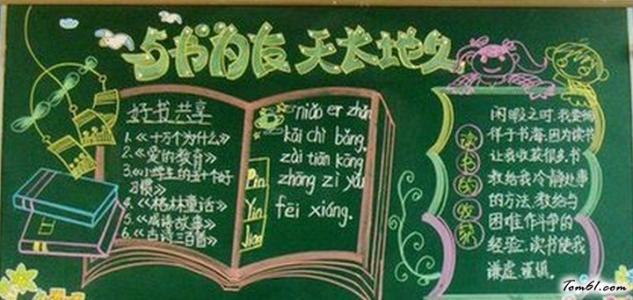 与书为友 天长地久
好书共享
1.《十万个为什么》
2.《爱的教育》
3.《小学生的五十个好
习惯》
4.《格林童话》
5.《成语故事》
6.《古诗三百首》
niǎo er zhǎn
kāi chì bǎng.
zài tiān kōng
zhōng zì yóu
fēi xiáng.
Pin
Yin
Jiao
读书的收获
闲暇之时,我爱徜
徉于书海,因为读书
让我收获很多,书
教给我冷静处事
的方法,教给与
困难作斗争的
经验,读书使我
谦虚、谨慎.
Tom61.com